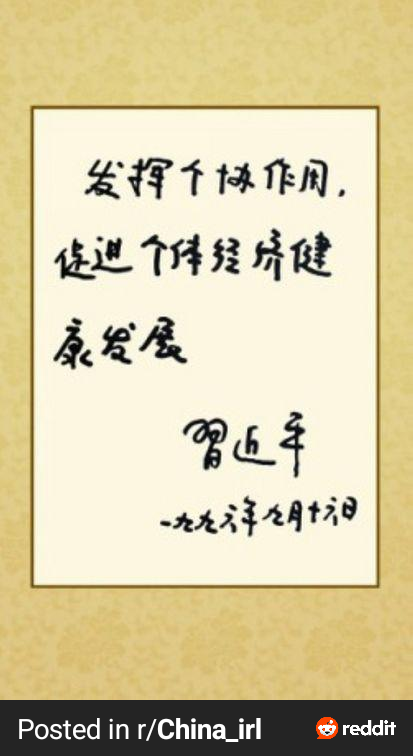 发挥个协作用，
促进个体经济健
康发展
習近平
一九九六年九月十六日
Posted in r/China_irl
reddit